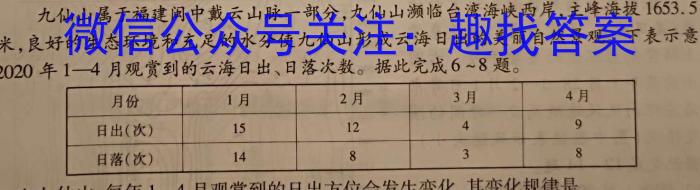 九仙山属于福建闽中戴云山脉一部分,九仙山濒临台湾海峡西岸,主峰海拔1653.5
米,良好的生态环境和充足的水分使九仙山形成云海日出的美丽自然景观。下表示意
2020年1—4月观赏到的云海日出、日落次数。据此完成6~8题。
微信公众号关注：趣找答案
月份 1月 2月 3月 4月
日出(次) 15 12 4 9
日落(次) 14 8 3 8
九仙山,每年1—4月观赏到的日出方位会发生变化,其变化规律是